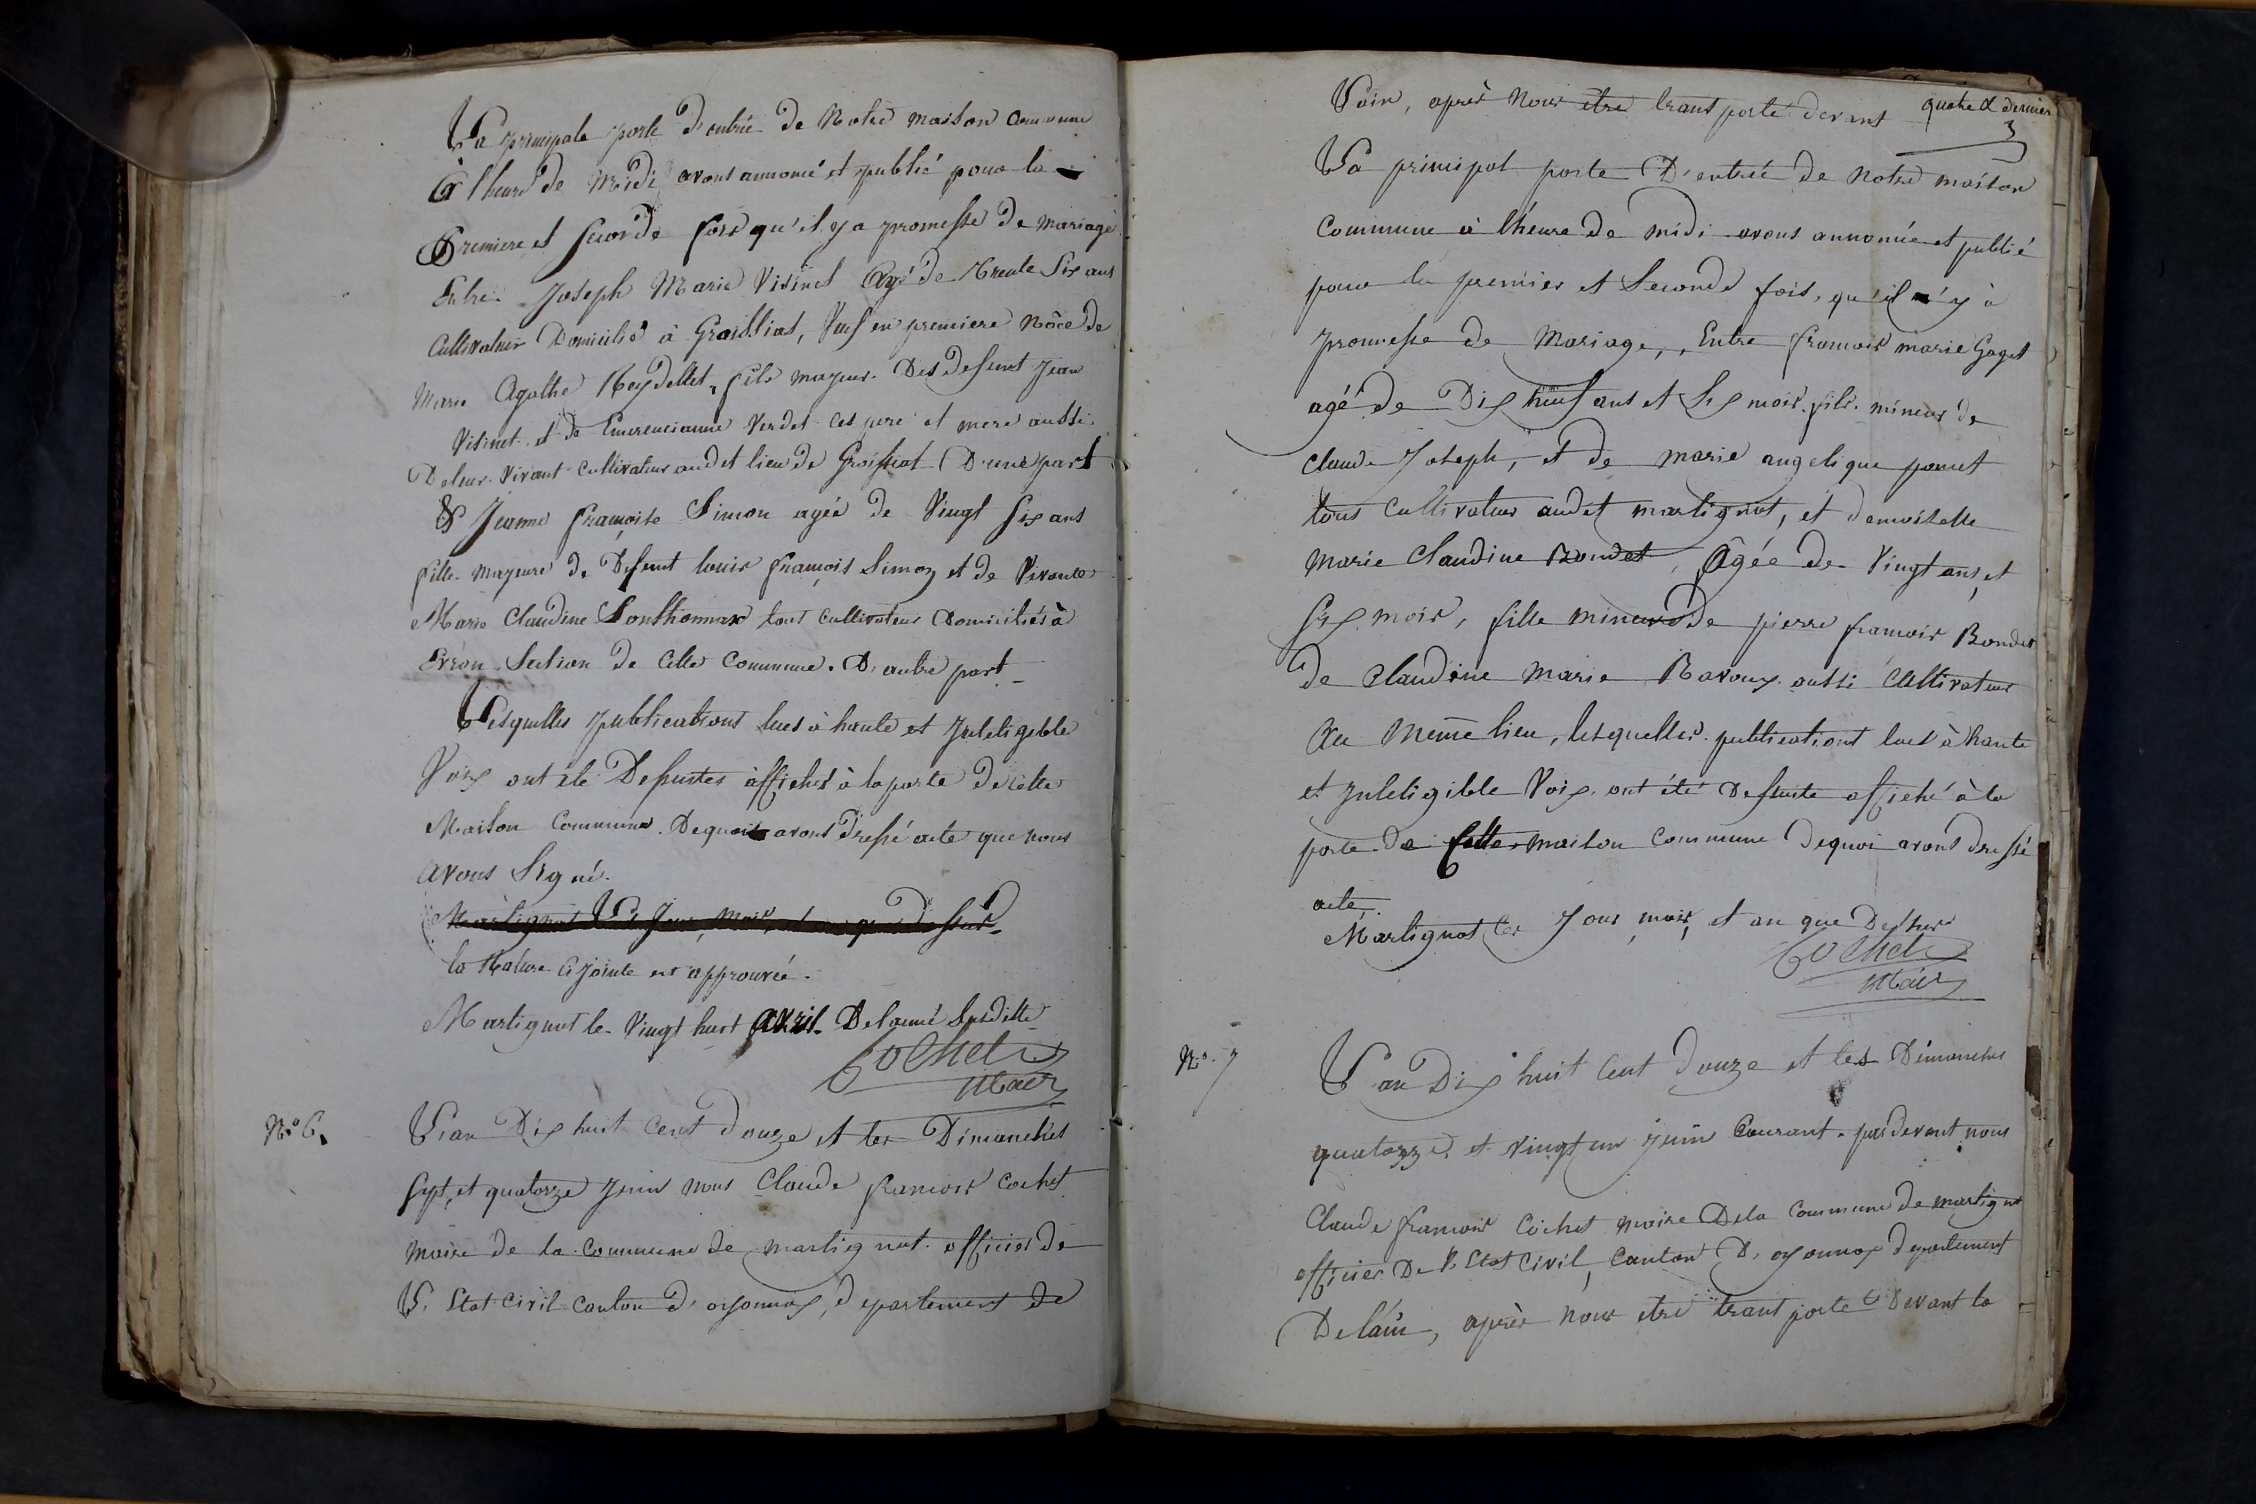 La principale porte d'entrée de Notre maison commune
à l'heure de Midi avons annoncé et publié pour la
Premiere et seconde fois qu'il y a promesse de mariage
Entre Joseph Marie Visinet Agé de trente six ans
Cultivateur Domicilié à Groissiat, Veuf en premiere Nôce de
Marie Agathe Reydellet, fils majeur. Des defunt Jean
Visinet et de Emerencianne Verdet ces pere et mere aussi
De leur vivant cultivateur audit lieu de Groissiat D'une part
& Jeanne françoise Simon agée de Vingt six ans
fille majeure de Defunt louis françois Simon et de Vivante
Marie Claudine tous cultivateur domiciliés à
Evron Section de Cette Commune. D'autre part
Lesquelles publications lues à haute et Inteligible
Voix ont été Desuites affiches à la porte de cette
Maison Commune. Dequoi avons dressé acte que nous
avons Signé.
Martignat Les Jour, mois, et an que dessus
la Rature cy jointe est approuvée.
Martignat le Vingt huit avril De l'année Susditte
Cochet
Maire
N.° 6. L'an Dix huit Cent douze et les Dimanches
sept, et quatorze Juin nous Claude francois Cochet
maire de la commune de martignat officier de
L'Etat Civil canton d'oyonnax, departement de
quatre & dernier
L'ain, après nous être transporté devant
La principal porte D'entrée de notre maison
Commune à l'heure de midi avons annoncée et publié
pour la premier et Seconde fois, qu'il y à
promesse de Mariage, Entre francois marie Goget
agé de Dix neuf ans et Six mois fils mineur de
Claude Joseph, et de marie angelique poncet
tous Cultivateur audit martignat, et demoiselle
Marie Claudine Bondet, Agée de Vingt ans, et
Six mois, fille mineure de pierre francois Bondet
de Claudine Marie Ravoux aussi Cultivateur
Au Même lieu, lesquelles publications lues à haute
et Inteligible Voix ont été Desuite affiché à la
porte de Cette maison Commune dequoi avons dressé
acte,
Martignat les Jour, mois, et an que Dessus
Cochet
Maire
N.° 7 L'an Dix huit Cent douze et les Dimanches
quatorze et vingt un juin Courant. par devant nous
Claude francois Cochet maire Dela Commune de martignat
officier De L'Etat Civil, Canton D'oyonnax departement
De l'ain, après nous etre transporté Devant la